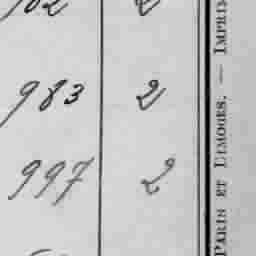 983 2
997 2
PARIS ET LIMOGES. — IMPRI